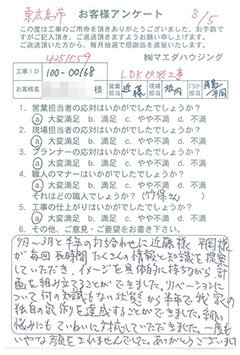 東広島市 お客様アンケート 8/5
この度は工事のご用命を頂きありがとうございました。お手数で
すがご記入頂き、ご返送頂きますようお願い申し上げます。
ご返送頂いた方から、毎月抽選で感謝品を進呈いたします。
㈱マエダハウジング
工事ID 100-00168 LDK改装工事
お客様名 様 営業担当 近藤 現場担当 プランナー 平岡
1. 営業担当者の応対はいかがでしたでしょうか?
a 大変満足 b. 満足 c. やや不満 d. 不満
2. 現場担当者の応対はいかがでしたでしょうか?
a 大変満足 b. 満足 c. やや不満 d. 不満
3. プランナーの応対はいかがでしたでしょうか?
a 大変満足 b. 満足 c. やや不満 d. 不満
4. 職人のマナーはいかがでしたでしょうか?
a 大変満足 b. 満足 c. やや不満 d. 不満
それはどの職人でしょうか?(竹保さん)
5. 工事の仕上がりはいかがでしたでしょうか?
a 大変満足 b. 満足 c. やや不満 d. 不満
6. その他、ご意見・ご要望をお書き下さい。
9月~3月と半年の打ち合わせに近藤様、平岡様
が毎回長時間たくさんの情報と知識を提案
していただき、イメージを具体的に持ちながら計
画を組み立てることができました。リノベーションに
ついて何の知識もない状態から半年で我が家の
独自の家術を達成することができました。細かい
悩みにもていねいに対応していただきました。一度も
いやな顔をされませんでした。ありがとうございます